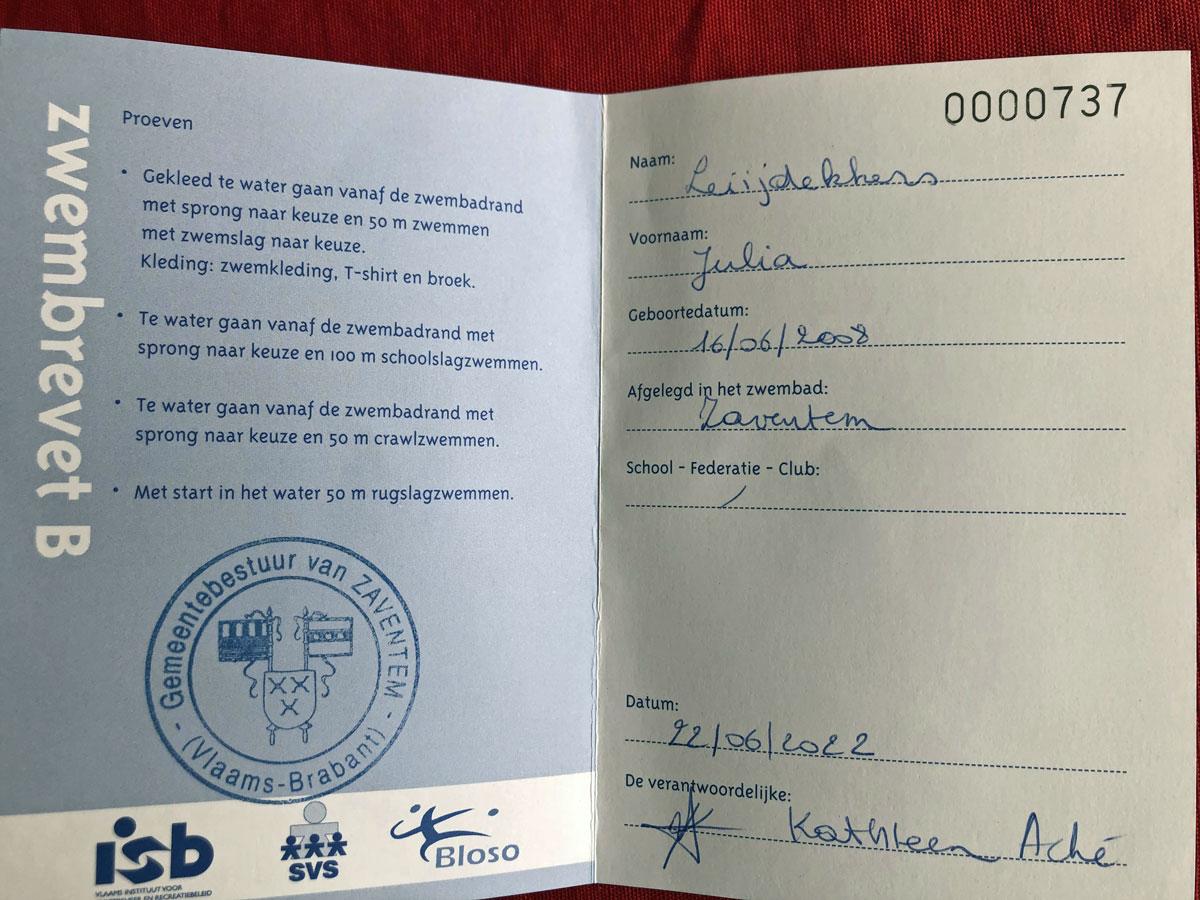 zwembrevet B
Proeven
• Gekleed te water gaan vanaf de zwembadrand
met sprong naar keuze en 50 m zwemmen
met zwemslag naar keuze.
Kleding: zwemkleding, T-shirt en broek.
• Te water gaan vanaf de zwembadrand met
sprong naar keuze en 100 m schoolslagzwemmen.
• Te water gaan vanaf de zwembadrand met
sprong naar keuze en 50 m crawlzwemmen.
• Met start in het water 50 m rugslagzwemmen.
- Gemeentebestuur van ZAVENTEM -
(Vlaams-Brabant)
isb
VLAAMS INSTITUUT VOOR
EN RECREATIEBELEID
SVS
Bloso
0000737
Naam: Leijdekkers
Voornaam: Julia
Geboortedatum: 16/06/2008
Afgelegd in het zwembad: Zaventem
School - Federatie - Club: /
Datum: 22/06/2022
De verantwoordelijke: Kathleen Aché